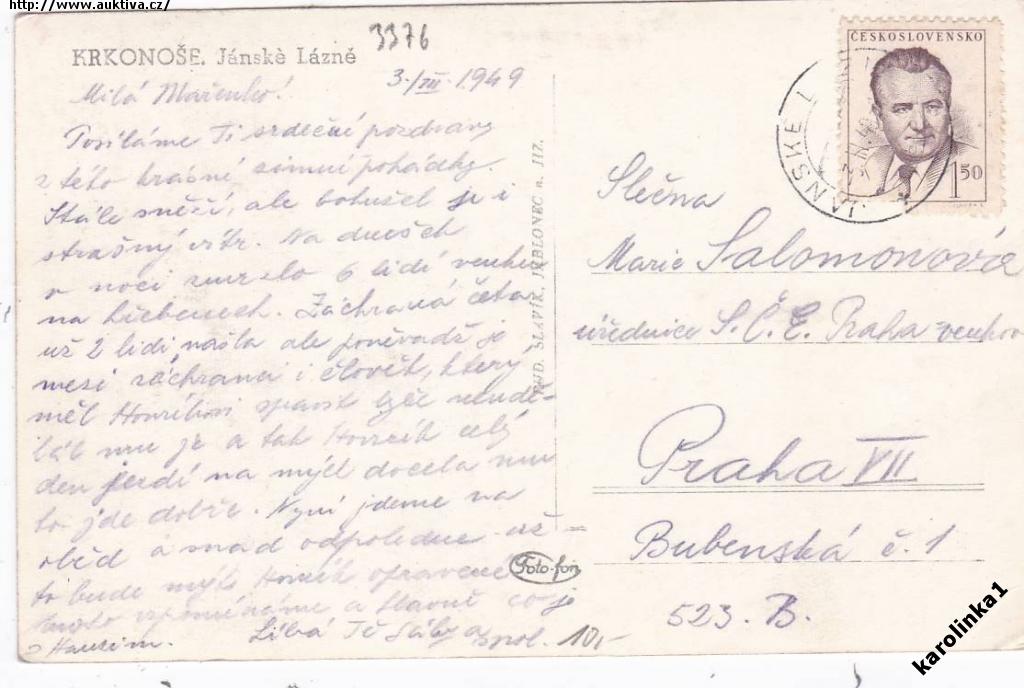 http://www.auktiva.cz/
3376
KRKONOŠE. Jánskè Lázně
3./III. 1949
Milá Mařenko!
Posíláme Ti srdečné pozdravy
z této krásné zimní pohádky.
Stále sněží, ale bohužel je i
strašný vítr. Na dnešek
v noci zmrzlo 6 lidí venku
na hřebenech. Záchraná četa
už 2 lidi našla ale poněvadž je
mezi záchranci i člověk, který
měl Honzíkovi spravit lyže neudě-
lal mu je a tak Honzík celý
den jezdí na mých docela mu
to jde dobře. Nyní jdeme na
oběd a snad odpoledne už
to bude mýt Honzík opravené
vzpomínáme a hlavně co je
s Hansim. Líbá Tě a spol.
10,-
Foto-fon
FUD. SLAVÍK, JABLONEC n. JIZ.
ČESKOSLOVENSKO
1 50
JÁNSKÉ L
Slečna
Marie Salomonová
úřednice S.Č.E. Praha-venkov
Praha VII
Bubenská č. 1
523. B.
karolinka1